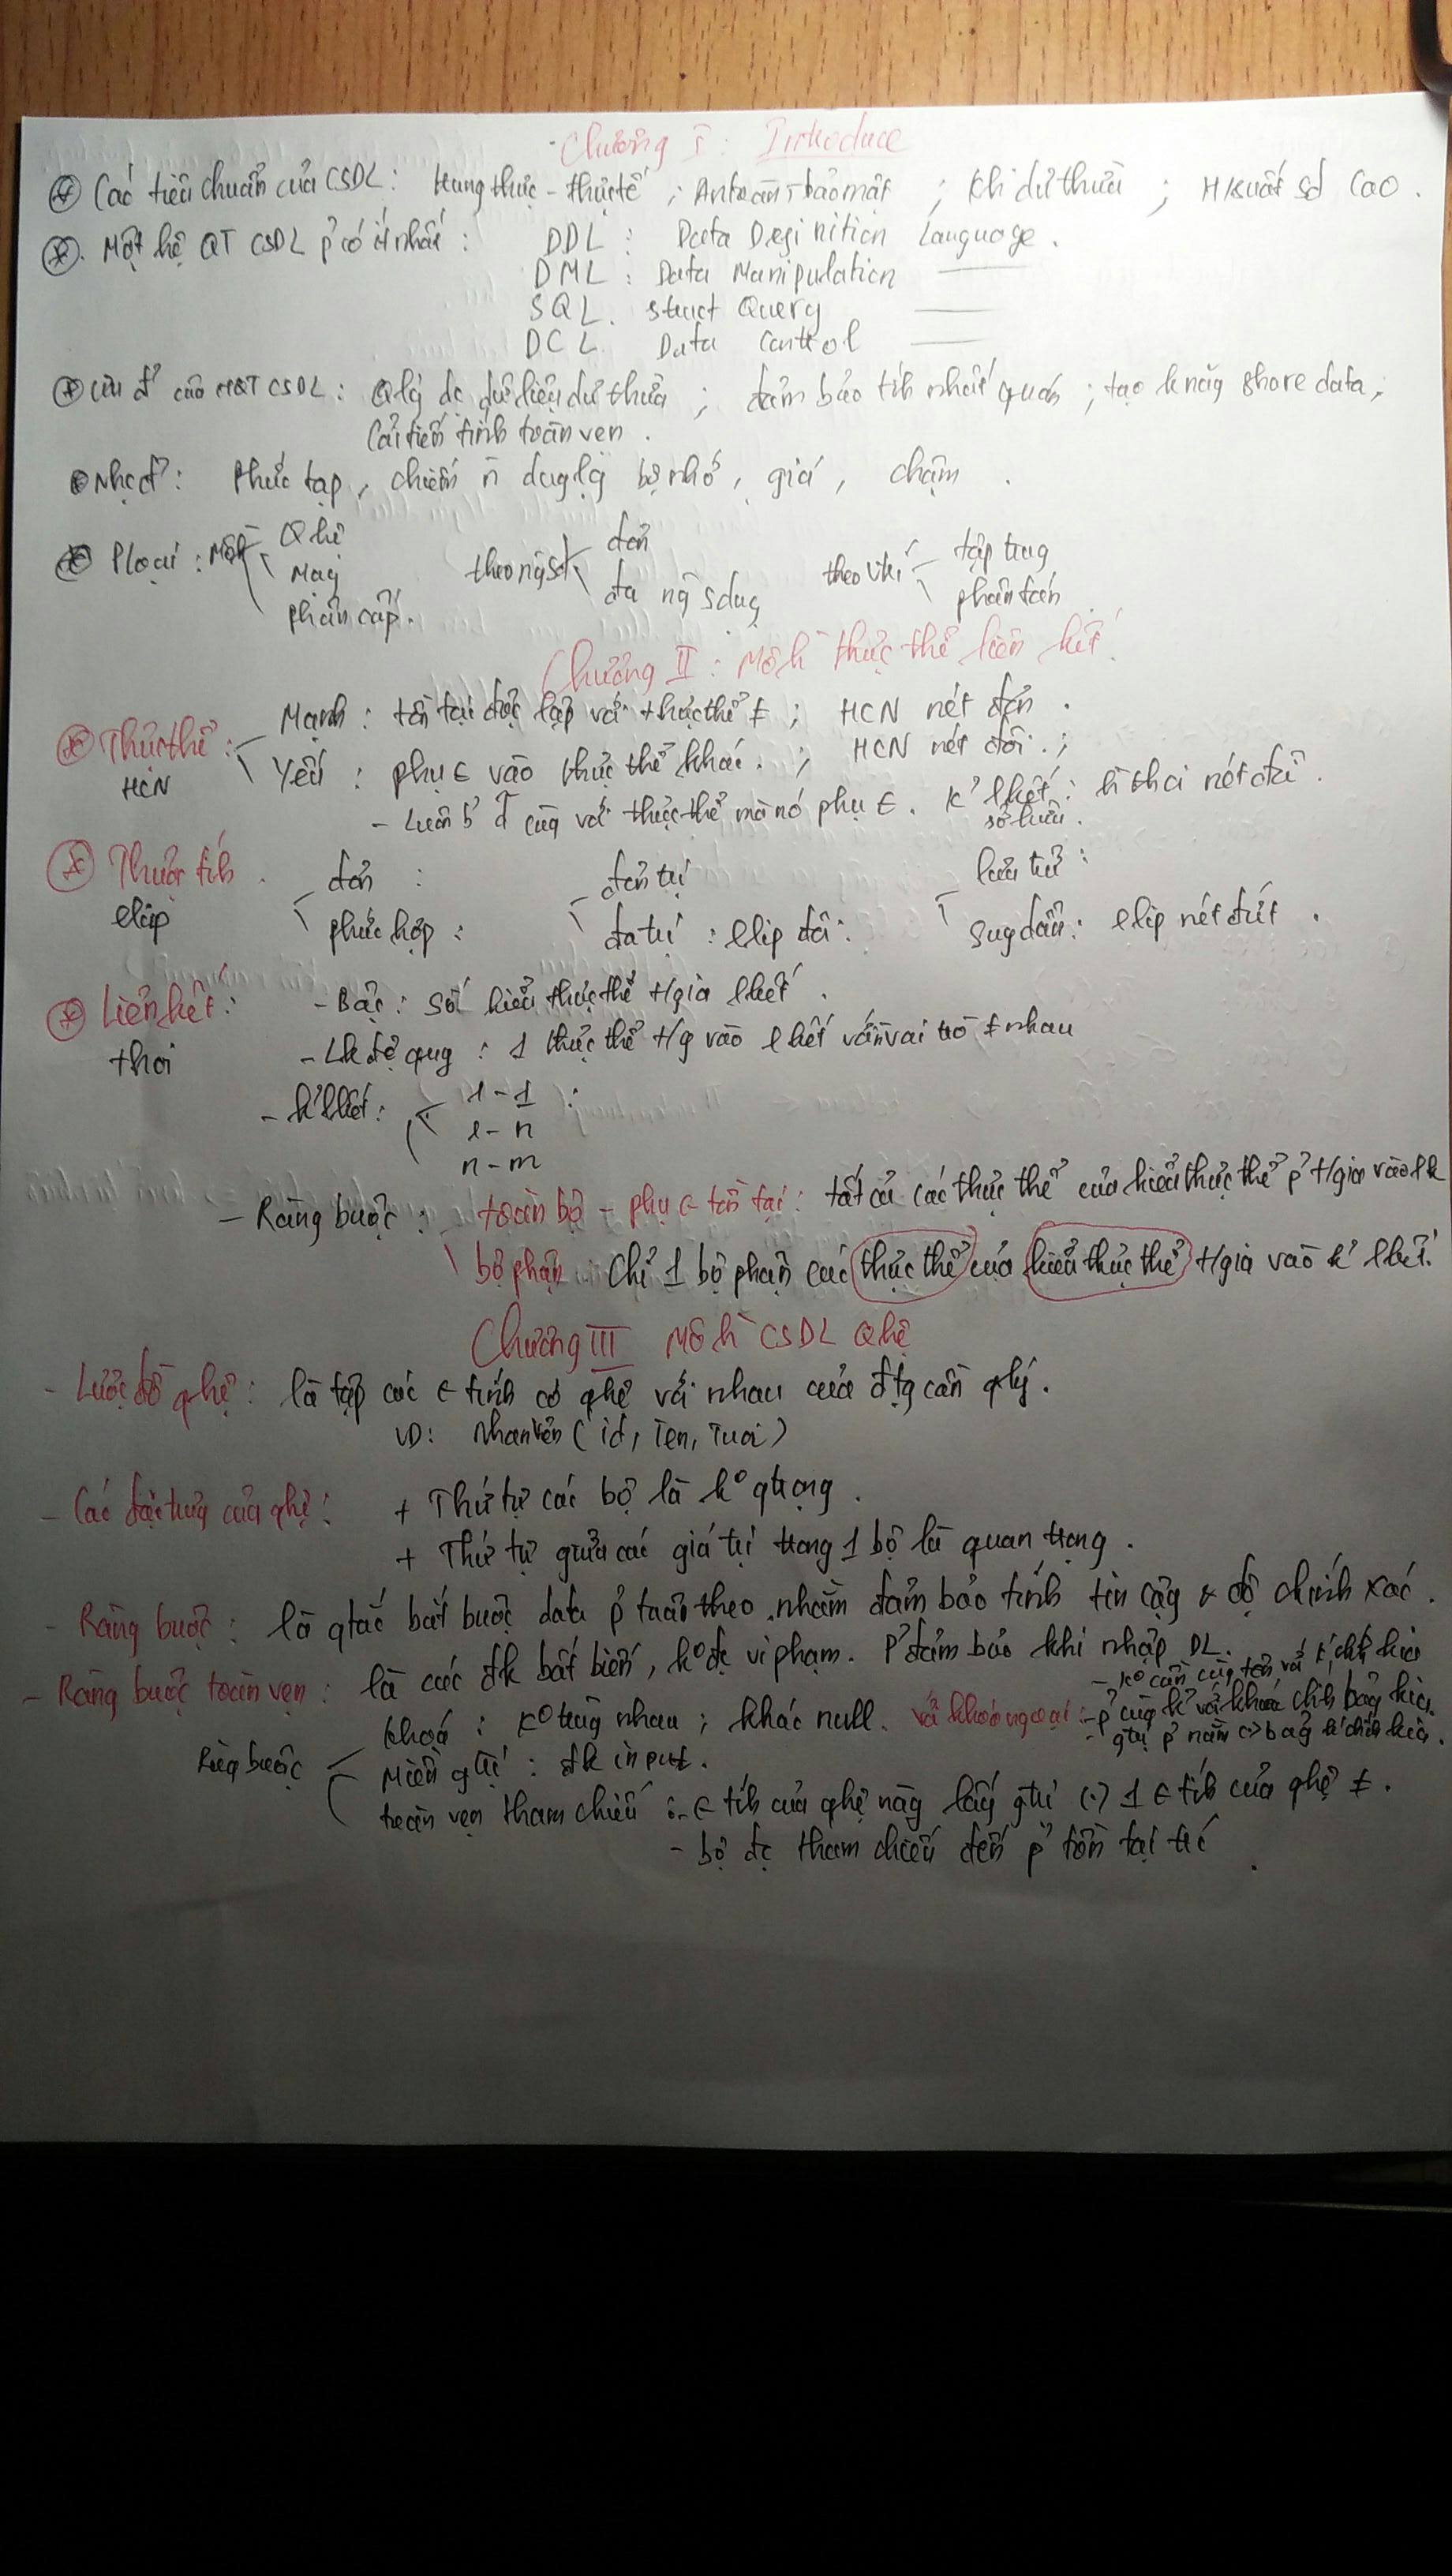 Chương I : Introduce
Các tiêu chuẩn của CSDL : trung thực - thực tế ; An toàn, bảo mật ; khi dư thừa ; H/suất sd cao .
Một hệ QT CSDL p̉ có ít nhất : DDL : Data Definition Language .
DML : Data Manipulation ———
SQL . Struct Query ———
DCL Data Control ———
Ưu đ' của HQT CSDL : Qlý đc dữ liệu dư thừa ; đảm bảo tíh nhất quán ; tạo k năg share data ,
Cải tiến tính toàn vẹn .
Nhc đ' : phức tạp , chiếm dug lg bộ nhớ , giá , chậm .
Ploại : Mô h̀ Qhệ theo ng sd đơn theo vị trí tập trug
Mạg đa ng sdug phân tán
phân cấp .
Chương II : Mô h̀ thực thể liên kết
Thực thể : Mạnh : tồn tại độc lập với thực thể ≠ ; HCN nét đơn .
HCN Yếu : phụ ∈ vào thực thể khác . ; HCN nét đôi . ;
- Luôn đi cùg với thực thể mà nó phụ ∈ . K' lkết : h̀ thoi nét đôi .
sở hữu .
Thuộc tíh . đơn : đơn trị lưu trữ :
elip phức hợp : đa trị : Elip đôi . Suy dẫn : elip nét đứt .
Liên kết : - Bậc : số kiểu thực thể t/gia lkết .
thoi - Lk đệ quy : 1 thực thể t/g vào lkết với vai trò ≠ nhau
- k' lkết : 1 - 1 :
1 - n
n - m
- Ràng buộc : toàn bộ - phụ ∈ tồn tại : tất cả các thực thể của kiểu thực thể p̉ t/gia vào lk
bộ phận : Chỉ 1 bộ phận các thực thể của kiểu thực thể t/gia vào k' lkết .
Chương III Mô h̀ CSDL Qhệ
- Lược đồ qhệ : là tập các ∈ tính có qhệ với nhau của đtg cần qlý .
VD : Nhanvien ( id , Ten , Tuoi )
- Các đặc trưg của qhệ : + Thứ tự các bộ là k° qtrọng .
+ Thứ tự giữa các giá trị trong 1 bộ là quan trọng .
- Ràng buộc : là qtắc bắt buộc data p̉ tuân theo , nhằm đảm bảo tính tin cậy & độ chính xác .
- Ràng buộc toàn vẹn : là các đk bất biến , k° đc vi phạm . P̉ đảm bảo khi nhập DL .
- k° cần cùg tên với
khoá : k° trùg nhau ; khác null . Với khoá ngoại : - p̉ cùg k' với khoá chíh bảg kia .
- gtrị p̉ nằm (.) bảg
Ràg buộc Miền gtrị : đk input .
toàn vẹn tham chiếu : - ∈ tíh của qhệ này lấy gtrị (.) 1 ∈ tíh của qhệ ≠ .
- bộ đc tham chiếu đến p̉ tồn tại trc